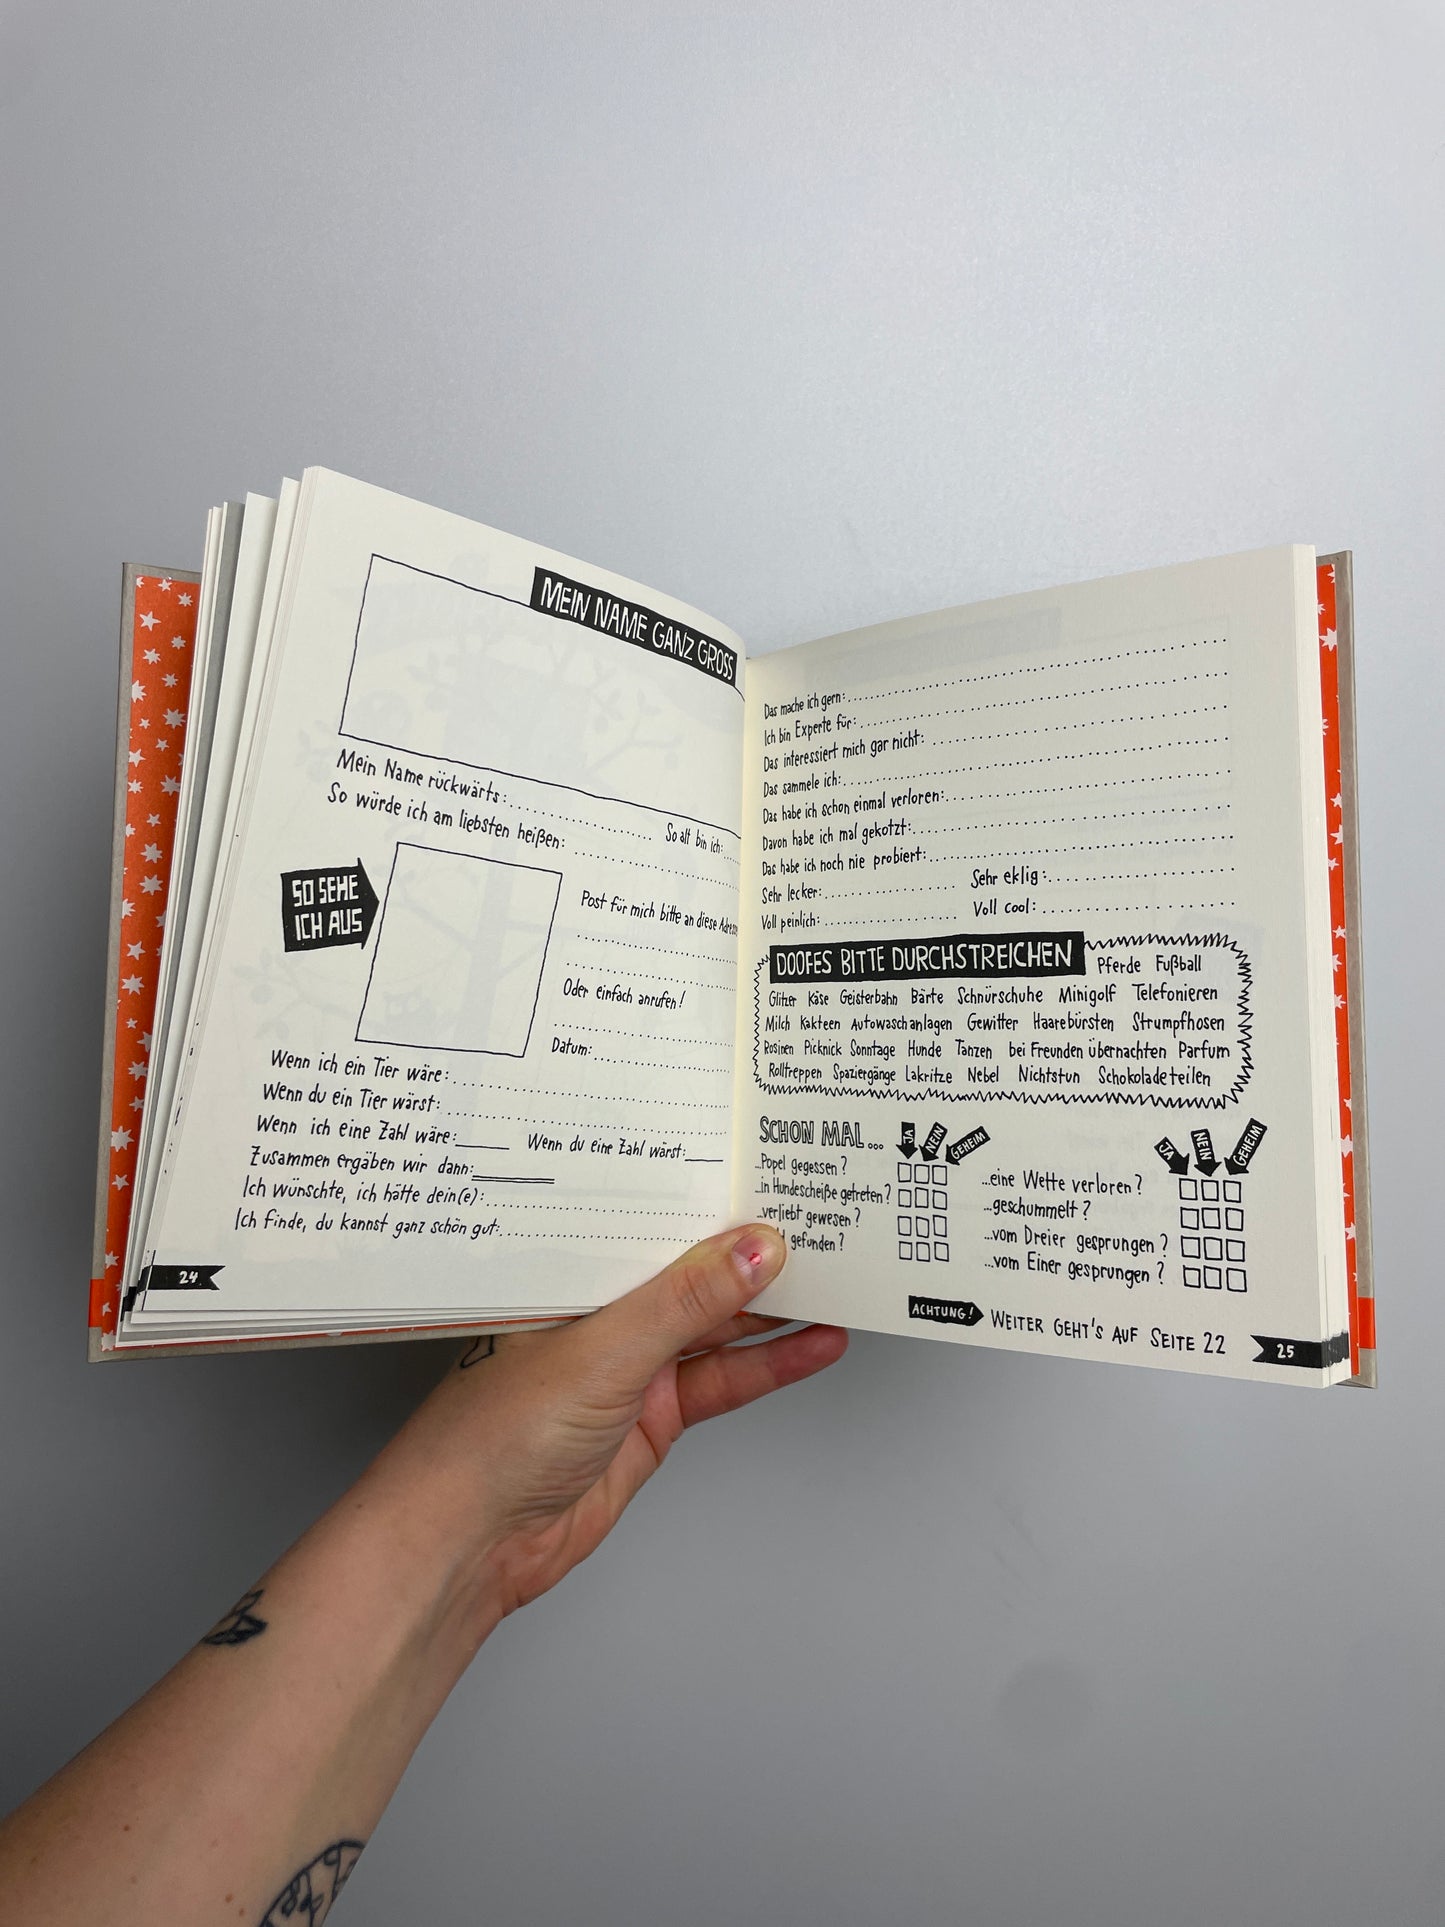 MEIN NAME GANZ GROSS
Mein Name rückwärts:
So alt bin ich:
So würde ich am liebsten heißen:
SO SEHE
ICH AUS
Post für mich bitte an diese
Oder einfach anrufen!
Datum:
Wenn ich ein Tier wäre:
Wenn du ein Tier wärst:
Wenn ich eine Zahl wäre: Wenn du eine Zahl wärst:
Zusammen ergäben wir dann:
Ich wünschte, ich hätte dein(e):
Ich finde, du kannst ganz schön gut:
24
Das mache ich gern:
Ich bin Experte für:
Das interessiert mich gar nicht:
Das sammele ich:
Das habe ich schon einmal verloren:
Davon habe ich mal gekotzt:
Das habe ich noch nie probiert:
Sehr lecker: Sehr eklig:
Voll peinlich: Voll cool:
DOOFES BITTE DURCHSTREICHEN Pferde Fußball
Glitzer Käse Geisterbahn Bärte Schnürschuhe Minigolf Telefonieren
Milch Kakteen Autowaschanlagen Gewitter Haarebürsten Strumpfhosen
Rosinen Picknick Sonntage Hunde Tanzen bei Freunden übernachten Parfum
Rolltreppen Spaziergänge Lakritze Nebel Nichtstun Schokolade teilen
SCHON MAL...
JA NEIN GEHEIM
...Popel gegessen?
...in Hundescheiße getreten?
...verliebt gewesen?
gefunden?
JA NEIN GEHEIM
...eine Wette verloren?
...geschummelt?
...vom Dreier gesprungen?
...vom Einer gesprungen?
ACHTUNG! WEITER GEHT'S AUF SEITE 22
25